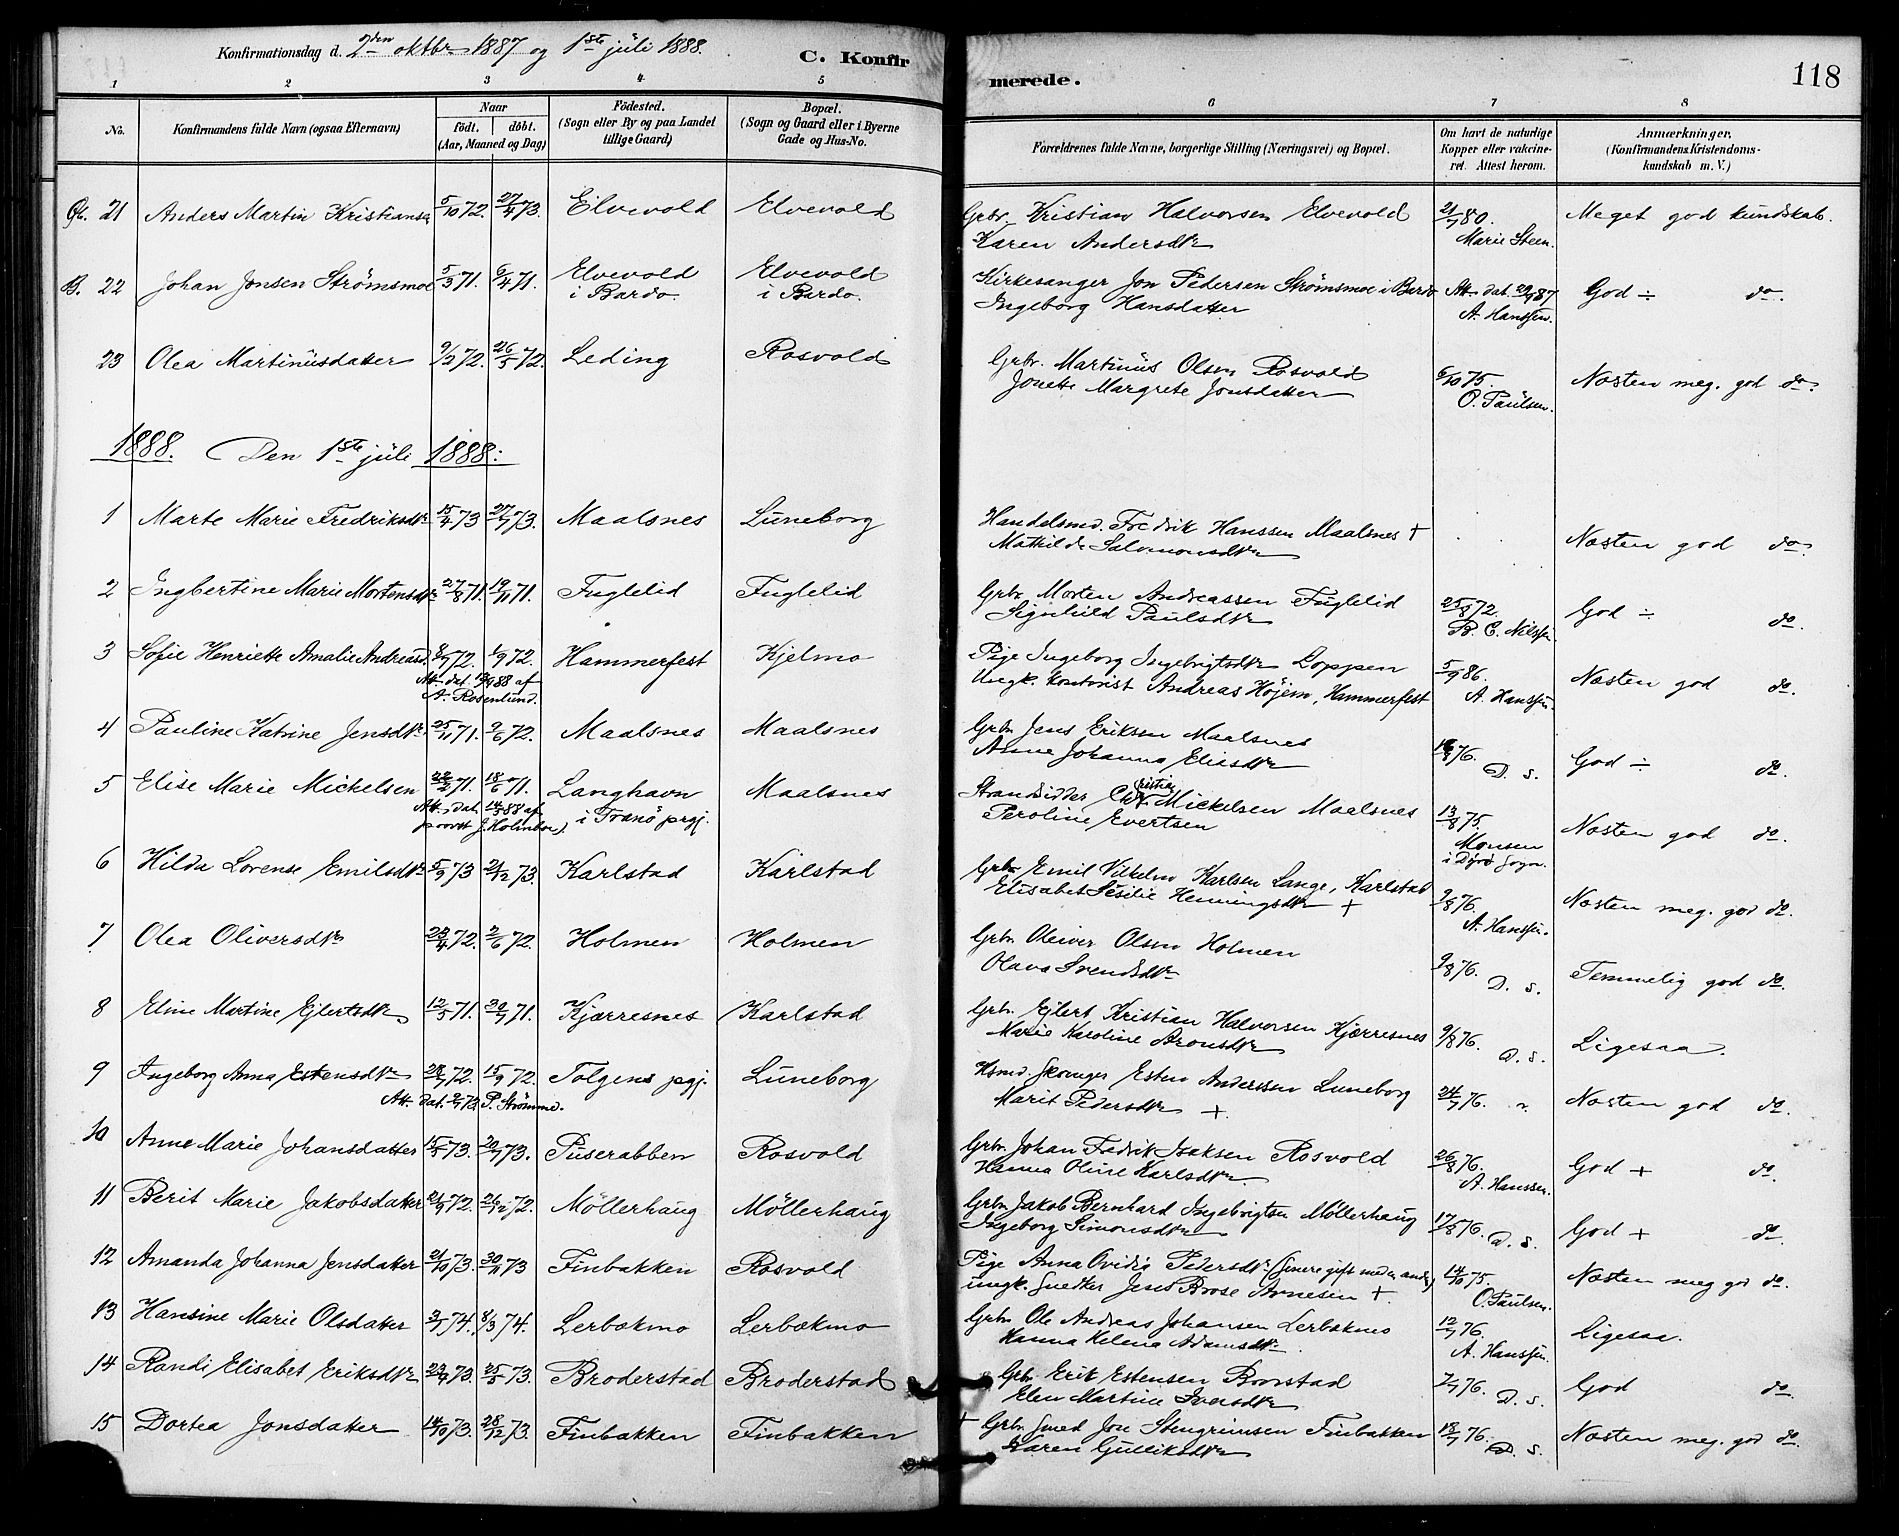 Konfirmationsdag d. 2den oktbr 1887 og 1ste juli 1888.
C. Konfirmerede.
118
1 2 3 4 5 6 7 8
No.
Konfirmandens fulde Navn (ogsaa Efternavn)
Naar
födt. döbt.
(Aar, Maaned og Dag)
Födested.
(Sogn eller By og paa Landet
tillige Gaard)
Bopæl.
(Sogn og Gaard eller i Byerne
Gade og Hus-No.
Forældrenes fulde Navne, borgerlige Stilling (Næringsvei) og Bopæl.
Om havt de naturlige
Kopper eller vakcine-
ret. Attest herom.
Anmærkninger.
(Konfirmandens Kristendoms-
kundskab m. V.)
21 Anders Martin Kristiansen 5/10 72. 27/4 73. Elvevold Elvevold Grbr. Kristian Halvorsen Elvevold 21/7 80. Meget god kundskab.
Karen Andersdtr Marie Steen.
B. 22 Johan Jonsen Strømsmoe 5/3 71. 6/4 71. Elvevold Elvevold Kirkesanger Jon Pedersen Strømsmoe i Bardo Att. dat. 29/9 87 God ÷ do.
i Bardo. i Bardo. Ingeborg Hansdatter A. Hanssen.
23 Olea Martinüsdatter 9/2 72. 26/5 72. Leding Rosvold Grbr. Martinüs Olsen Rosvold 6/10 75. Næsten meg. god do.
Jonette Margrete Jonsdatter O. Paülsen.
1888. Den 1ste jüli 1888:
1 Marte Marie Fredriksdtr 15/4 73 27/7 73. Maalsnes Lüneborg Handelsmd. Fredrik Hanssen Maalsnes + Næsten god do.
Mathilde Salomonsdtr
2 Ingbertine Marie Mortensdtr 27/8 71. 19/11 71. Fuglelid Fuglelid Grbr. Morten Andreassen Fuglelid 25/8 72. God ÷ do.
Signhild Paulsdtr B. C. Nilssen
3 Sofie Henriette Amalie Andreasd. 8/7 72. 1/9 72. Hammerfest Kjelmo Pige Ingeborg Ingebrigtsdtr Loppen 5/9 86. Næsten god do.
Att. dat. 88 af Ungk. kontorist Andreas Höjem, Hammerfest A. Hanssen.
A. Rosenlund.
4 Pauline Katrine Jensdtr. 25/11 71. 9/6 72. Maalsnes Maalsnes Grbr. Jens Eriksen Maalsnes 76. God ÷ do.
Anne Johanna Eliesdtr D. s.
5 Elise Marie Mickelsen 22/2 71. 18/6 71. Langhavn Maalsnes Strandsidder Christian Mickelsen Maalsnes 13/8 75. Næsten god do.
Att. dat. 14/5 88 af i Tranö prgj. Peroline Evertsen Monsen
provst J. Holmboe. i Dyrö sogn.
6 Hilda Lorense Emilsdtr 5/9 73 21/12 73. Karlstad Karlstad Grbr Emil Vilhelm Karlsen Lange, Karlstad 9/8 76. Næsten meg. god do.
Elisabet Sesilie Henningsdtr + A. Hanssen.
7 Olea Oliversdtr 23/4 72. 2/6 72. Holmen Holmen Grbr. Oliver Olsen Holmen 9/8 76. Temmelig god do.
Olava Svendsdtr D. s.
8 Eline Martine Ejlertsdtr 12/5 71. 30/7 71. Kjærresnes Karlstad Grbr. Ejlert Kristian Halvorsen Kjærresnes 9/8 76. Ligesaa.
Marie Karoline Aronsdtr D. s.
9 Ingeborg Anna Estensdtr 28/7 72. 15/9 72. Tolgens prgj. Lüneborg Hsmd. Esten Anderssen Luneborg 24/7 76. Næsten god do.
Att. dat. P. Strømme. Marit Pedersdtr +
10 Anne Marie Johansdatter 15/5 73. 20/7 73. Püserabben Rosvold Grbr. Johan Fredrik Isaksen Rosvold 26/8 76. God + do.
Hanna Oline Karlsdtr. A. Hanssen.
11 Berit Marie Jakobsdatter 21/9 72. 26/12 72. Möllerhaüg Möllerhaüg Grbr Jakob Bernhard Ingebrigtsen Möllerhaug 17/8 76. God + do.
Ingeborg Simonsdtr D. s.
12 Amanda Johanna Jensdatter 21/10 73. 30/11 73 Finbakken Rosvold Pige Anna Ovidia Pedersdtr (senere gift med en anden) 14/10 75. Næsten meg god do.
ungk. Snedker Jens Brose Arnesen + O. Paülsen.
13 Hansine Marie Olsdatter 3/1 74. 8/3 74. Lerbækmo Lerbækmo Grbr. Ole Andreas Johansen Lerbækmo 12/7 76. Ligesaa.
Hanna Helena Adamsdtr. A. Hanssen.
14 Randi Elisabet Eriksdtr 73. 25/5 73. Broderstad Broderstad Grbr. Erik Estensen Brorstad 7/7 76. God do.
Elen Martine Iversdtr D. s.
15 Dortea Jonsdatter 14/10 73. 28/12 73. Finbakken Finbakken + Grbr. Smed Jon Stengrimsen Finbakken 13/7 76. Næsten meg. god do.
Karen Gulliksdtr D. s.